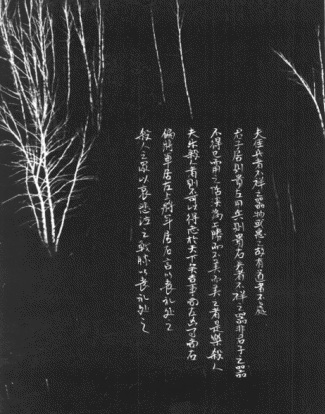 夫佳兵者不祥之器物或惡之故有道者不處
君子居則貴左用兵則貴右兵者不祥之器非君子之器
不得已而用之恬淡為上勝而不美而美之者是樂殺人
夫樂殺人者則不可以得志於天下矣吉事尚左凶事尚右
偏將軍居左上將軍居右言以喪禮處之
殺人之眾以哀悲泣之戰勝以喪禮處之